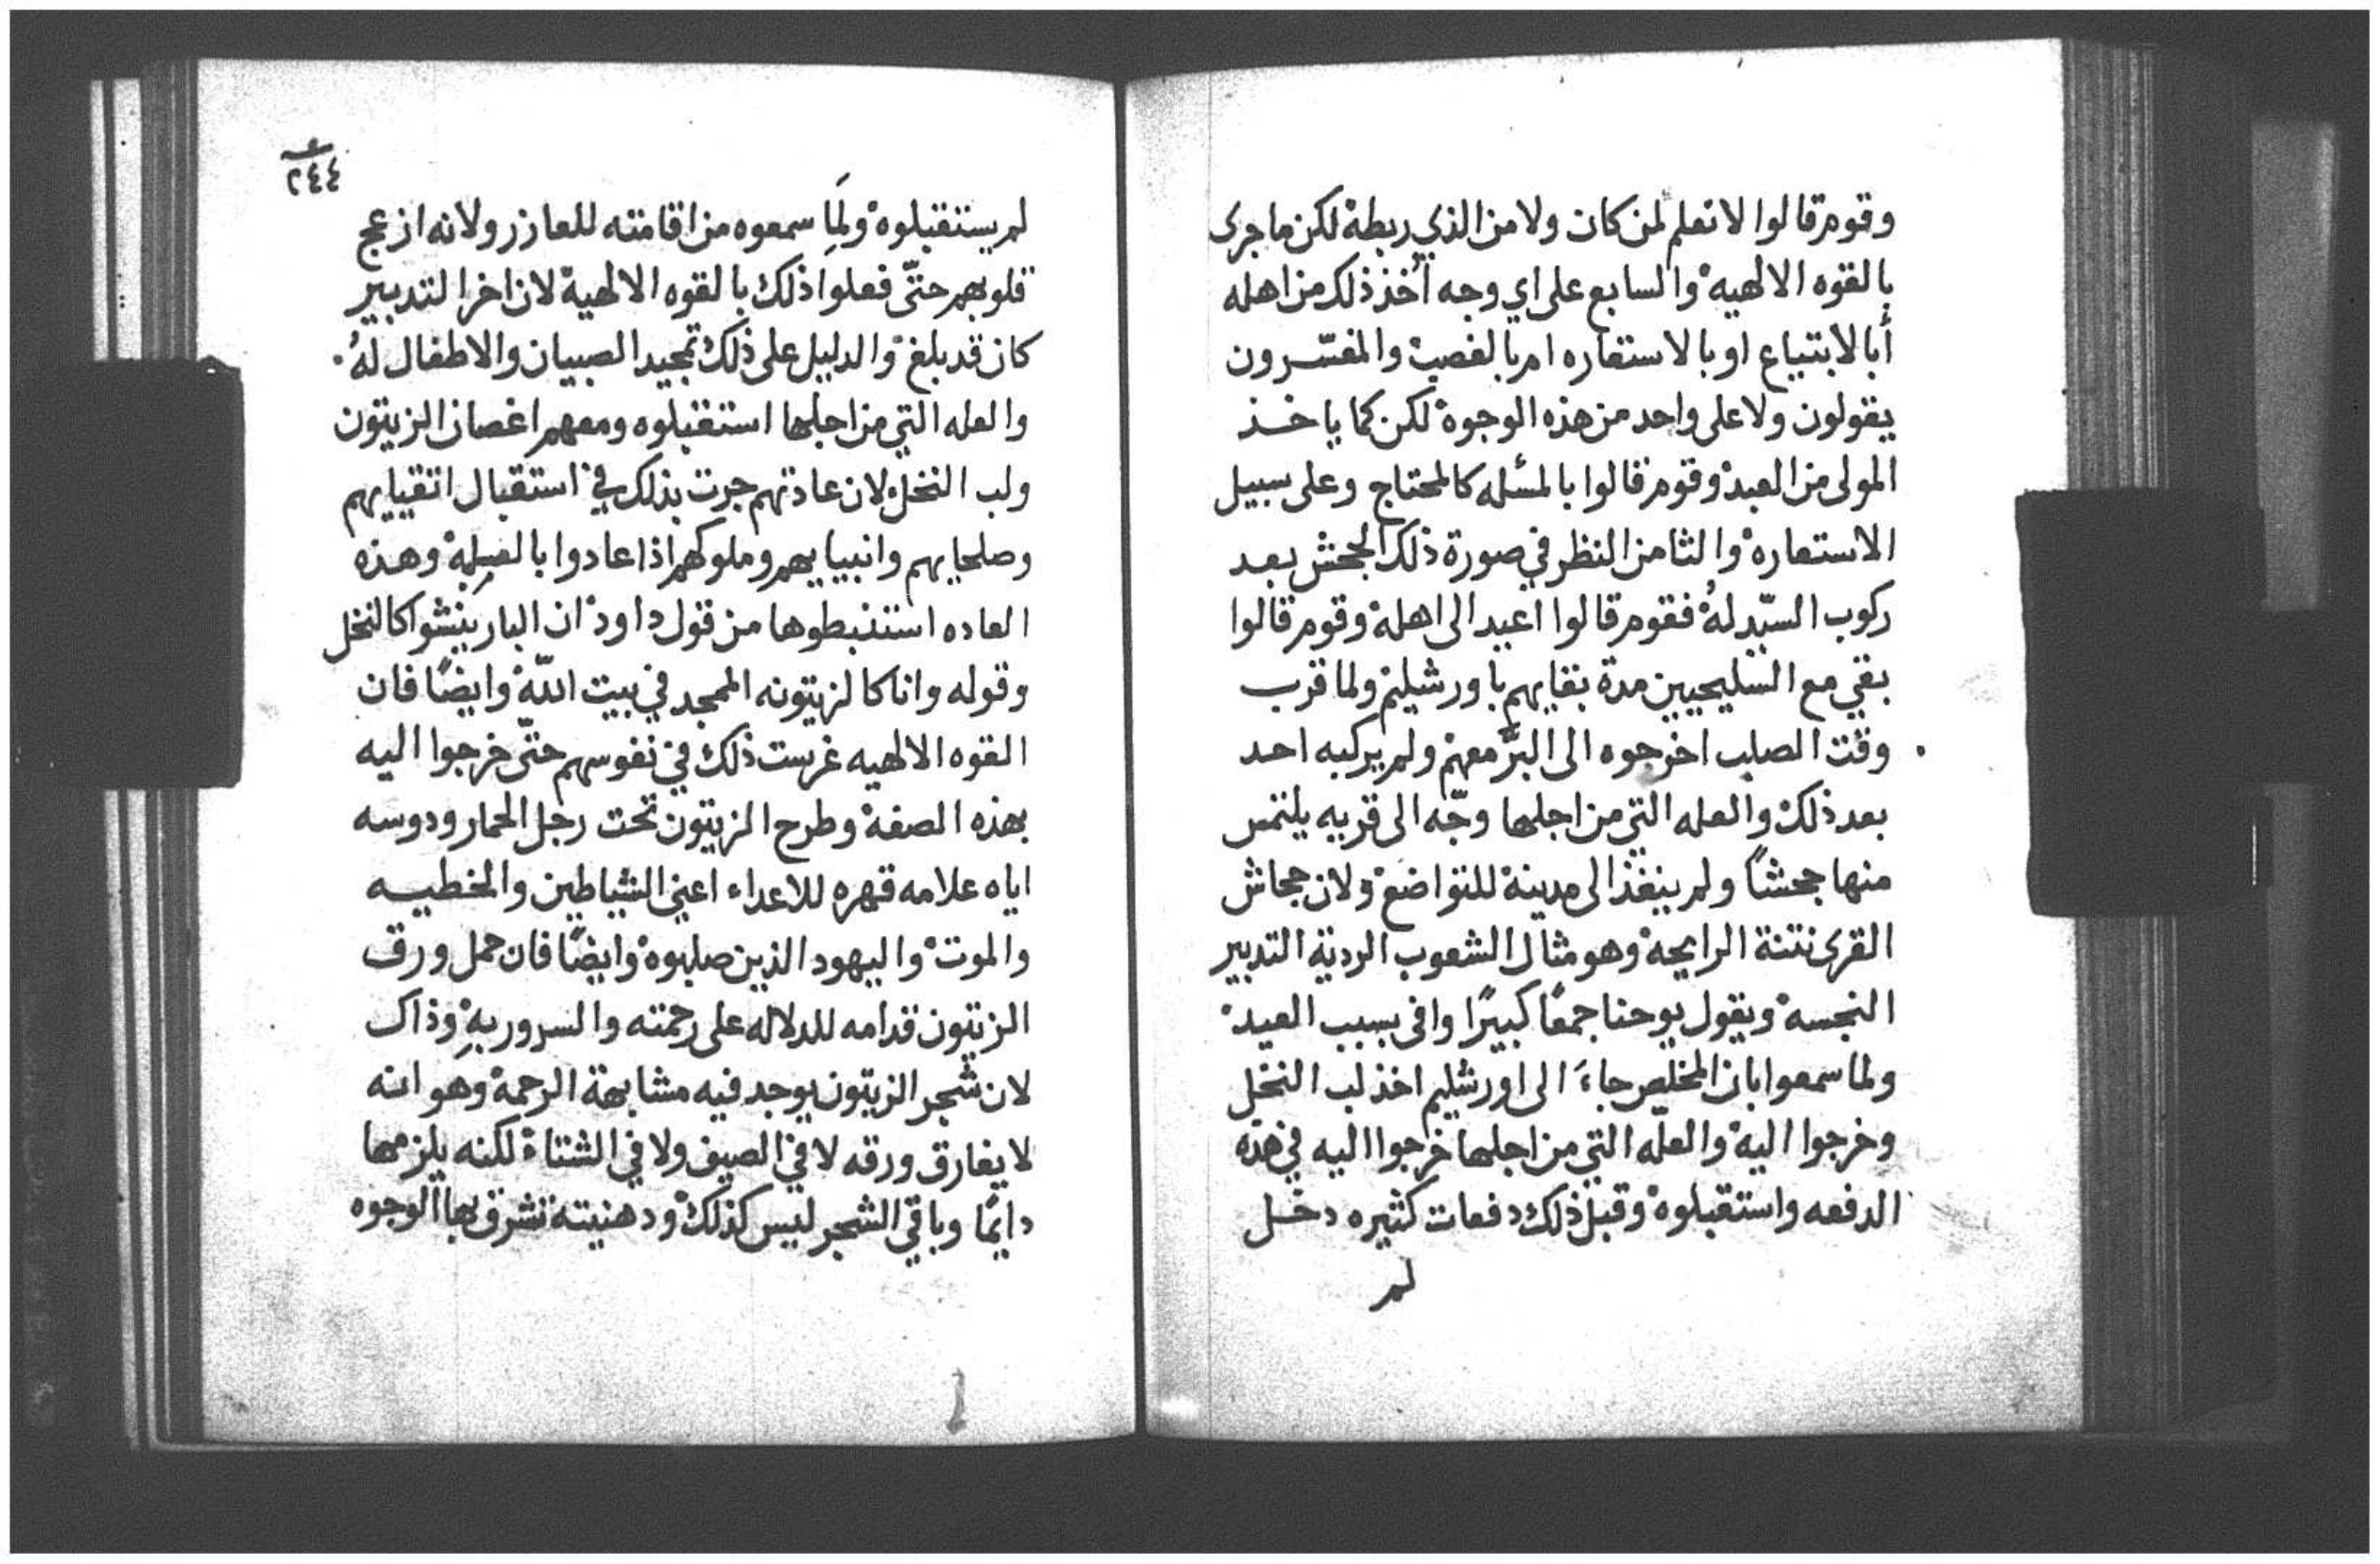 وقوم قالوا لا نعلم لمن كان ولا من الذي ربطهْ لكن ما جرى
بالقوه الالهيهْ والسابع على اي وجه أُخذ ذلك من اهله
أبالابتياع او بالاستعاره ام بالغصبْ والمفسّرون
يقولون ولا على واحد من هذه الوجوهْ لكن كما ياخذ
المولى من العبدْ وقوم قالوا بالمسٔله كالمحتاج وعلى سبيل
الاستعارهْ والثامن النظر في صورة ذلك الجحش بعد
ركوب السّيد لهُ فقوم قالوا اعيد الى اهلهْ وقوم قالوا
بقي مع السليحيين مدة بقايهم باورشليمْ ولما قرب
وقت الصلب اخرجوه الى البرّ معهمْ ولم يركبه احد
بعد ذلكْ والعله التي من اجلها وجّه الى قريه يلتمس
منها جحشًا ولم ينفذ الى مدينة للتواضعْ ولان جحاش
القرى نتنة الرايحهْ وهو مثال الشعوب الردية التدبير
النجسهْ ويقول يوحنا جمعًا كبيرًا وافى بسبب العيدْ
ولما سمعوا بان المخلص جاءَ الى اورشليم اخذ لب النخل
وخرجوا اليهْ والعلّه التي من اجلها خرجوا اليه في هذه
الدفعه واستقبلوهْ وقبل ذلك دفعات كثيره دخل
لم
٢٤٤
لم يستقبلوهْ ولَمِا سمعوه من اقامته للعازر ولانه ازعج
قلوبهم حتّى فعلوا ذلك بالقوه الالهيهْ لان اخر التدبير
كان قد بلغْ والدليل على ذلك تمجيد الصبيان والاطفال لهُ.
والعله التي من اجلها استقبلوه ومعهم اغصان الزيتون
ولب النخلْ لان عادتهم جرت بذلك في استقبال اتقيايهم
وصلحايهم وانبيايهم وملوكهم اذا عادوا بالغبلهْ وهذه
العاده استنبطوها من قول داودْ ان البار ينشوا كالنخل
وقوله وانا كالزيتونه الممجد في بيت اللّهْ وايضًا فان
القوه الالهيه غرست ذلك في نفوسهم حتّى خرجوا اليه
بهذه الصفهْ وطرح الزيتون تحت رجل الحمار ودوسه
اياه علامه قهره للاعداء اعني الشياطين والخطيه
والموتْ واليهود الذين صلبوهْ وايضًا فان حمل ورق
الزيتون قدامه للدلاله على رحمته والسرور بهِْ وذاك
لان شجر الزيتون يوجد فيه مشابهة الرحمهْ وهو انه
لا يفارق ورقه لا في الصيف ولا في الشتاءْ لكنه يلزمها
دايمًا وباقي الشجر ليس كذلكْ ودهنيته تشرق بها الوجوه